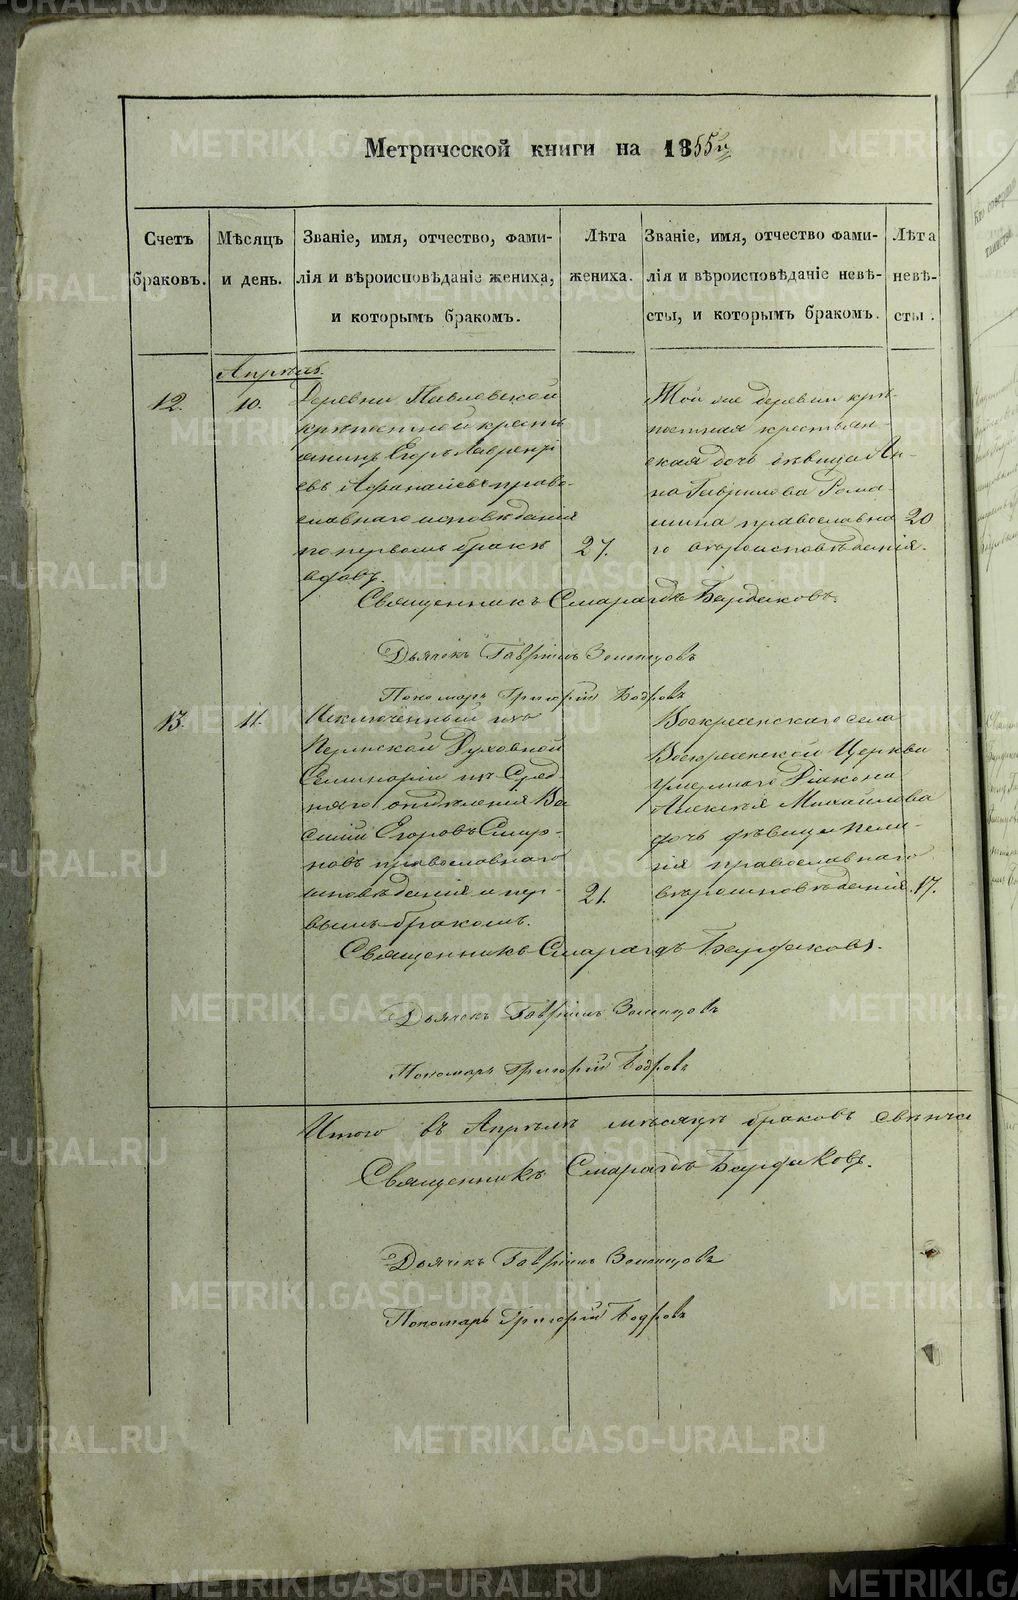 Метрической книги на 1855й
Счетъ браковъ.
Мѣсяцъ и день.
Званіе, имя, отчество, фами-
лія и вѣроисповѣданіе жениха,
и которымъ бракомъ.
Лѣта жениха.
Званіе, имя, отчество фами-
лія и вѣроисповѣданіе невѣ-
сты, и которымъ бракомъ.
Лѣта невѣ-
сты.
Апрѣль.
12.
10.
Деревни Павловской
крѣпостной кресть
янинъ Егоръ Лаврентi
евъ Афанасьевъ право-
славнаго исповѣданія
по первомъ бракѣ
вдовъ.
27.
Той же деревни крѣ-
постная крестьян-
ская дочь дѣвица Ан-
на Гаврилова Рома-
шина православна
го вѣроисповѣданія.
20
Священникъ Смарагдъ Бардаковъ.
Дьячекъ Гавріилъ
Пономарь Григорій Бодровъ
13.
11.
Исключенный изъ
Пермской Духовной
Семинаріи изъ Сред-
няго отдѣленія Ва
силій Егоровъ Смир-
новъ православнаго
исповѣданія и пер-
вымъ бракомъ.
21.
Воскресенскаго села
Воскресенской Церкви
умершаго Діакона
Алексѣя Михайлова
дочь дѣвица
православнаго
вѣроисповѣданія.
17.
Священникъ Смарагдъ Бардаковъ.
Дьячекъ Гавріилъ
Пономарь Григорій Бодровъ
Итого въ Апрѣлѣ мѣсяцѣ браковъ свѣнча
Священникъ Смарагдъ Бардаковъ.
Дьячекъ Гавріилъ
Пономарь Григорій Бодровъ
METRIKI.GASO-URAL.RU